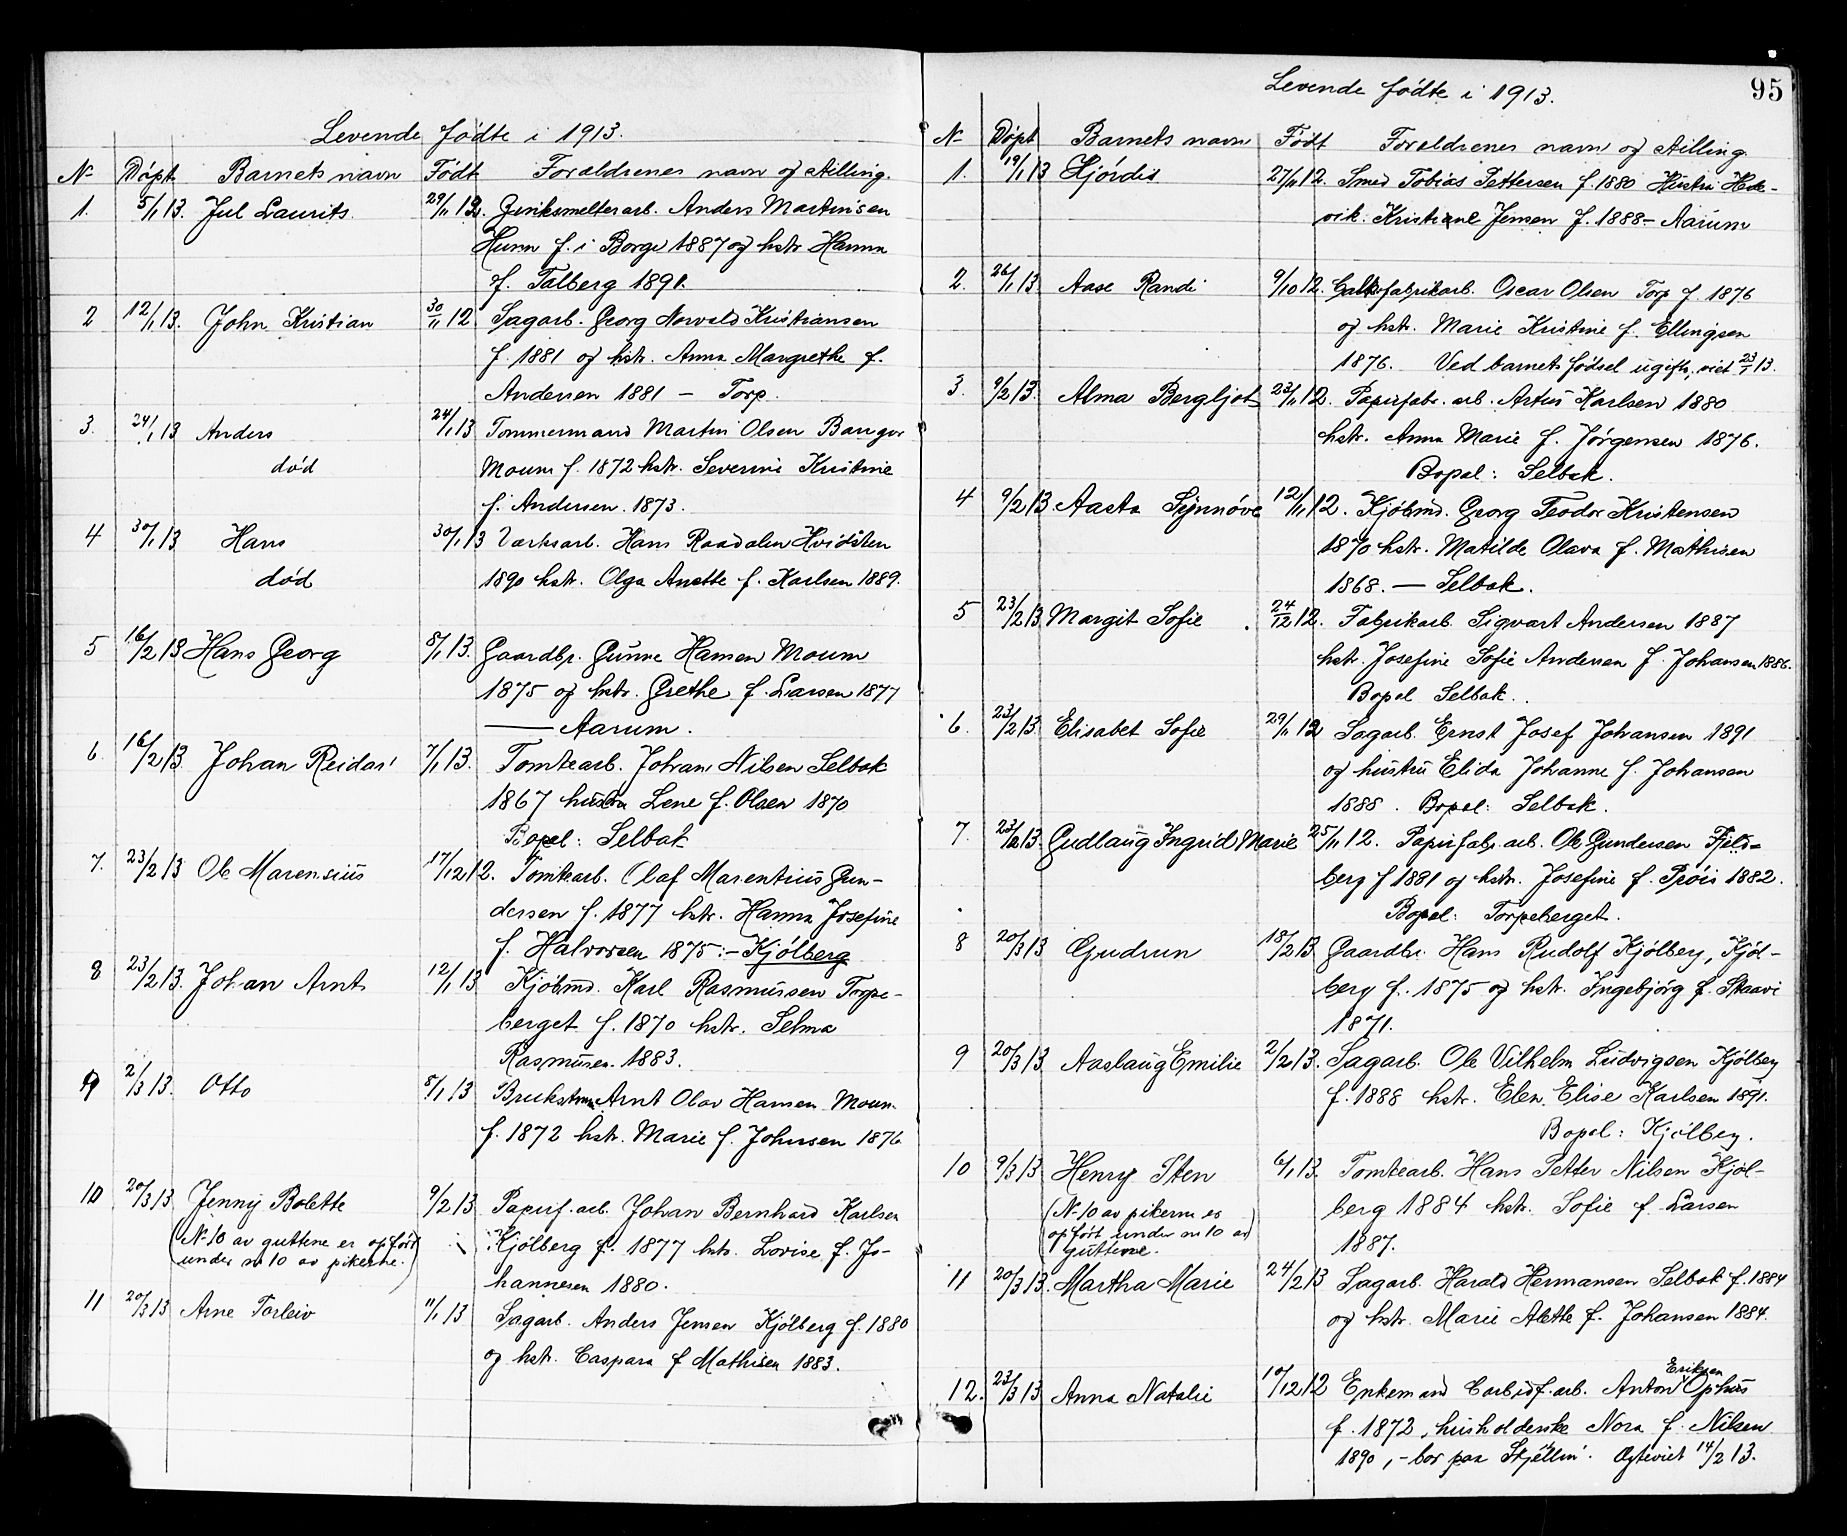 Levende fødte i 1913.
No Døpt Barnets navn Født Foraldrenes navn og stilling.
1. 5/1 13. Jul Laurits. 29/11 12. Zinksmelterarb. Anders Martinsen
Hunn f. i Borge 1887 og hstr. Hanna
f. Talberg 1891.
2 12/1 13. John Kristian 30/11 12 Sagarb. Georg Norvald Kristiansen
f. 1881 og hstr. Anna Margrethe f.
Andersen 1881 — Torp.
3. 24/1 13 Anders 24/1 13 Tømmermand Martin Olsen
død Moum f. 1872 hstr. Severine Kristine
f. Andersen. 1873.
4 30/1 13 Hans 30/1 13 Værksarb. Hans Raadalen Hvidsten
død 1890 hstr. Olga Anette f. Karlsen 1889.
5 16/2 13 Hans Georg 8/1 13. Gaardbr. Gunne Hansen Moum
1875 og hstr. Grethe f. Larsen 1877
— Aarum.
6. 16/2 13 Johan Reidar 7/1 13. Tomtearb. Johan Nilsen Selbak
1867 hustru Lene f. Olsen 1870
Bopæl: Selbak
7. 23/2 13 Ole Marensius 17/12 12. Tomtearb. Olaf Marentius Gun-
dersen f. 1877 hstr. Hanna Josefine
f. Halvorsen 1875.— Kjölberg
8 23/2 13. Johan Arnt 12/1 13 Kjöbmd. Karl Rasmussen Torpe-
berget f. 1870 hstr. Selma
Rasmussen. 1883.
9 2/3 13. Otto 8/1 13 Arnt Olav Hansen Moum
f. 1872 hstr. Marie f. Johnsen 1876
10 20/3 13 Jenny Bolette 9/2 13 Papirf. arb. Johan Bernhard Karlsen
(No 10 av guttene er opført Kjölberg f. 1877 hstr. Lovise f. Jo-
under no 10 av pikerne.) hannesen 1880.
11 20/3 13 Arne Torleiv 11/1 13 Sagarb. Anders Jensen Kjölberg f. 1880
og hstr. Caspara f. Mathisen 1883.
95
Levende fødte i 1913.
No Døpt Barnets navn Født Foraldrenes navn og stilling.
1. 19/1 13 Hjördis 27/11 12. Smed Tobias Pettersen f. 1880 Hustru Hed-
vik. Kristiane Jensen f. 1888 — Aarum
2. 26/1 13. Aase Randi 9/10 12. Oscar Olsen Torp f. 1876
og hstr. Marie Kristine f. Ellingsen
1876. Ved barnets fødsel ugifte, viet 23/1 13.
3. 9/2 13. Alma Bergljot 23/11 12. Papirfabr. arb. Artur Karlsen 1880
hstr. Anna Marie f. Jörgensen 1876.
Bopæl: Selbak.
4 9/2 13. Aasta Synnöve 12/11 12. Kjöbmd. Georg Teodor Kristensen
1870 hstr. Matilde Olava f. Mathisen
1868. — Selbak.
5 23/2 13 Margit Sofie 24/12 12. Fabrikarb. Sigvart Andersen 1887
hstr. Josefine Sofie Andersen f. Johansen 1886.
Bopæl Selbak.
6. 23/2 13. Elisabet Sofie 29/11 12 Sagarb. Ernst Josef Johansen 1891
og hustru Elida Johanne f. Johansen
1888. Bopæl: Selbak.
7. 23/2 13. Gudlaug Ingrid Marie 25/11 12. Papirfabr. arb. Ole Gundersen Fjeld-
berg f. 1881 og hstr. Josefine f. Pröis 1882.
Bopæl: Torpeberget.
8 20/3 13 Gudrun 18/2 13 Gaardbr. Hans Rudolf Kjölberg, Kjöl-
berg f. 1875 og hstr. Ingebjörg f. Skaavi
1871.
9 20/3 13 Aaslaug Emilie 2/2 13. Sagarb. Ole Vilhelm Ludvigsen Kjölberg
f. 1888 hstr. Elen Elise Karlsen 1891.
Bopæl: Kjölberg.
10 9/3 13 Henry Sten 6/1 13. Tomtearb. Hans Petter Nilsen Kjöl-
(No 10 av pikerne er berg 1884 hstr. Sofie f. Larsen
opført under no 10 av 1887.
guttene.)
11 20/3 13. Martha Marie 24/2 13 Sagarb. Harald Hermansen Selbak f. 1884
og hstr. Marie Alette f. Johansen 1884.
12. 23/3 13 Anna Natalie 10/12 12 Enkemand Carbidf. arb. Anton Eriksen Ophus
f. 1872, husholderske Nora f. Nilsen
1890, — bor paa Skjellin. Egteviet 14/2 13.